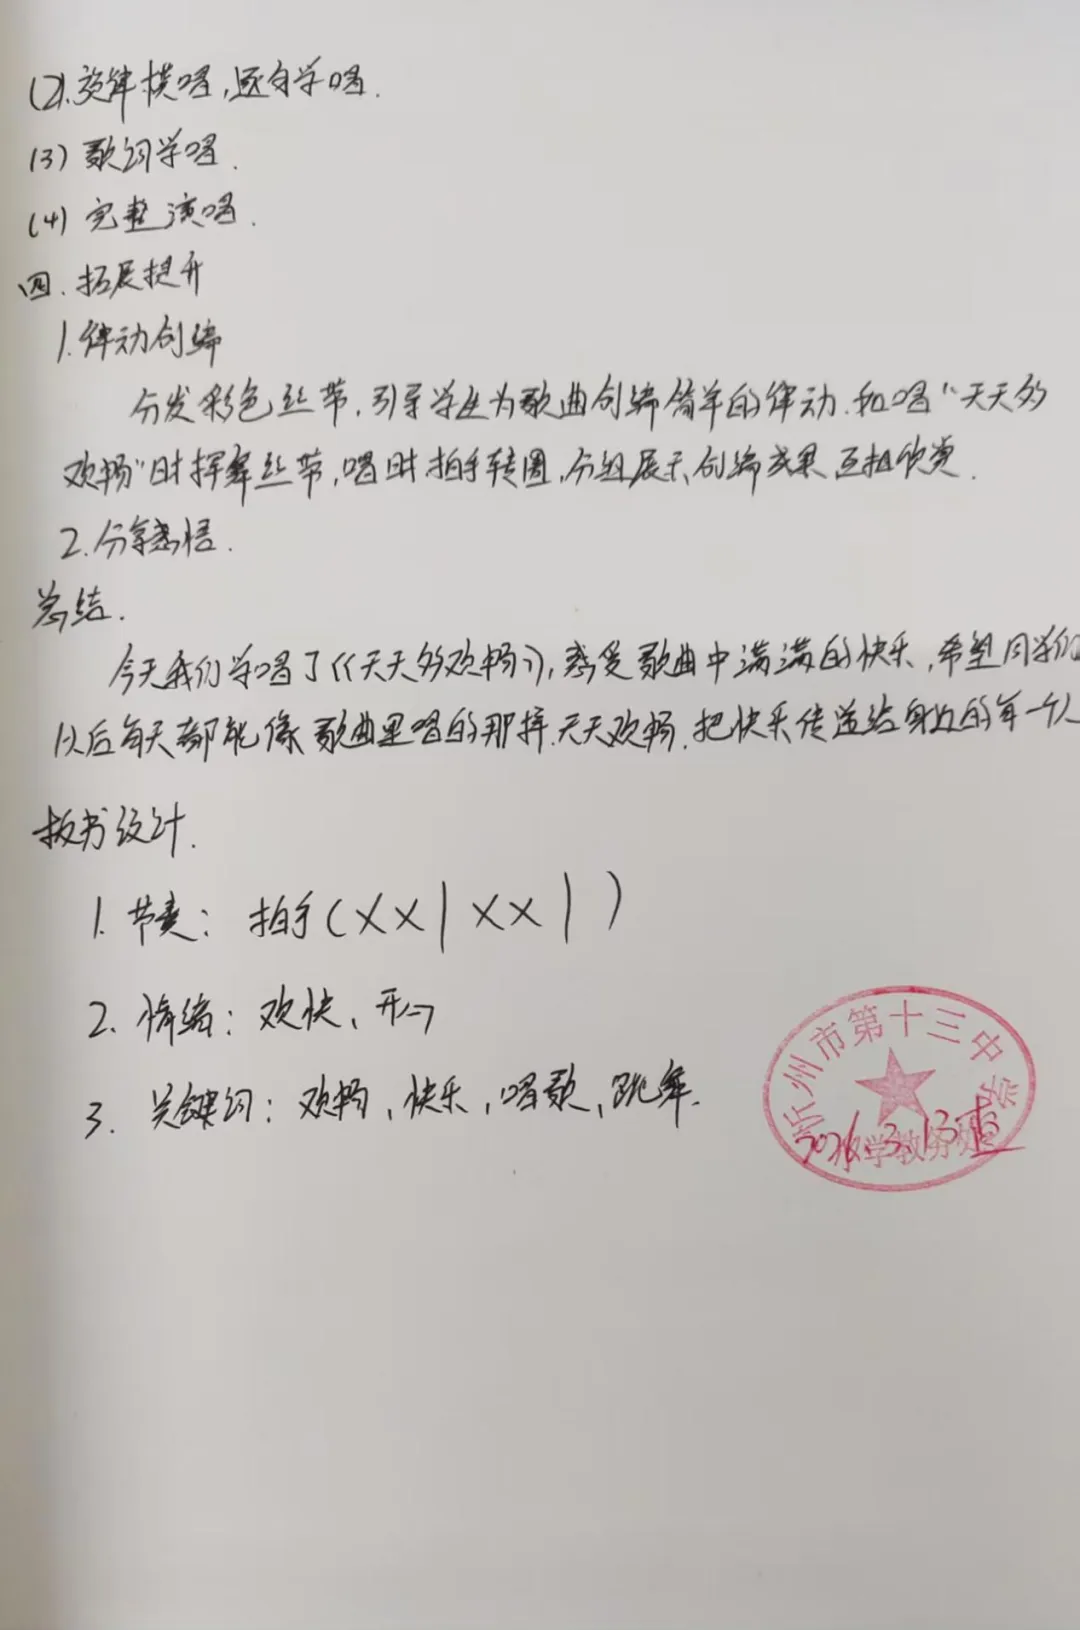 (2).旋律模唱,逐句学唱.
(3) 歌词学唱.
(4) 完整演唱.
四.拓展提升
1.律动创编
分发彩色丝带,引导学生为歌曲创编简单的律动.和唱“天天多
欢畅”时挥舞丝带,唱时拍手转圈,分组展示创编成果 互相欣赏.
2.分享感悟.
总结.
今天我们学唱了《天天多欢畅》,感受歌曲中满满的快乐,希望同学们
以后每天都能像歌曲里唱的那样.天天欢畅.把快乐传递给身边的每一个人
板书设计.
1.节奏: 拍手(XX|XX|)
2.情绪:欢快、开心
3.关键词:欢畅、快乐,唱歌、跳舞.
忻州市第十三中学
教务处
2026.3.13 查